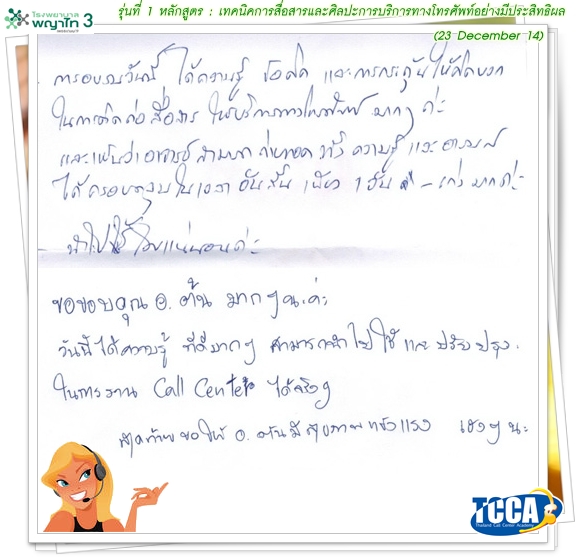 โรงพยาบาล
พญาไท 3
รุ่นที่ 1 หลักสูตร : เทคนิคการสื่อสารและศิลปะการบริการทางโทรศัพท์อย่างมีประสิทธิผล
(23 December 14)
การอบรมวันนี้ ได้ความรู้ ข้อคิด และการกระตุ้นให้คิดบวก
ในการติดต่อสื่อสาร ให้บริการทางโทรศัพท์ มากๆ ค่ะ
และเห็นว่าอาจารย์สามารถถ่ายทอด ความรู้ และ
ได้ครอบคลุมในเวลาอันสั้น เพียง 1 วัน เก่งมากค่ะ
- นำไปใช้ แน่นอนค่ะ
ขอขอบคุณ อ. ต้น มากๆนะค่ะ
วันนี้ได้ความรู้ ที่ดีมากๆ สามารถนำไปใช้และปรับปรุง
ในการงาน Call Center ได้จริงๆ
สุดท้ายขอให้ อ. ต้นมีสุขภาพแข็งแรง เฮงๆ นะ
TCCA
Thailand Call Center Academy